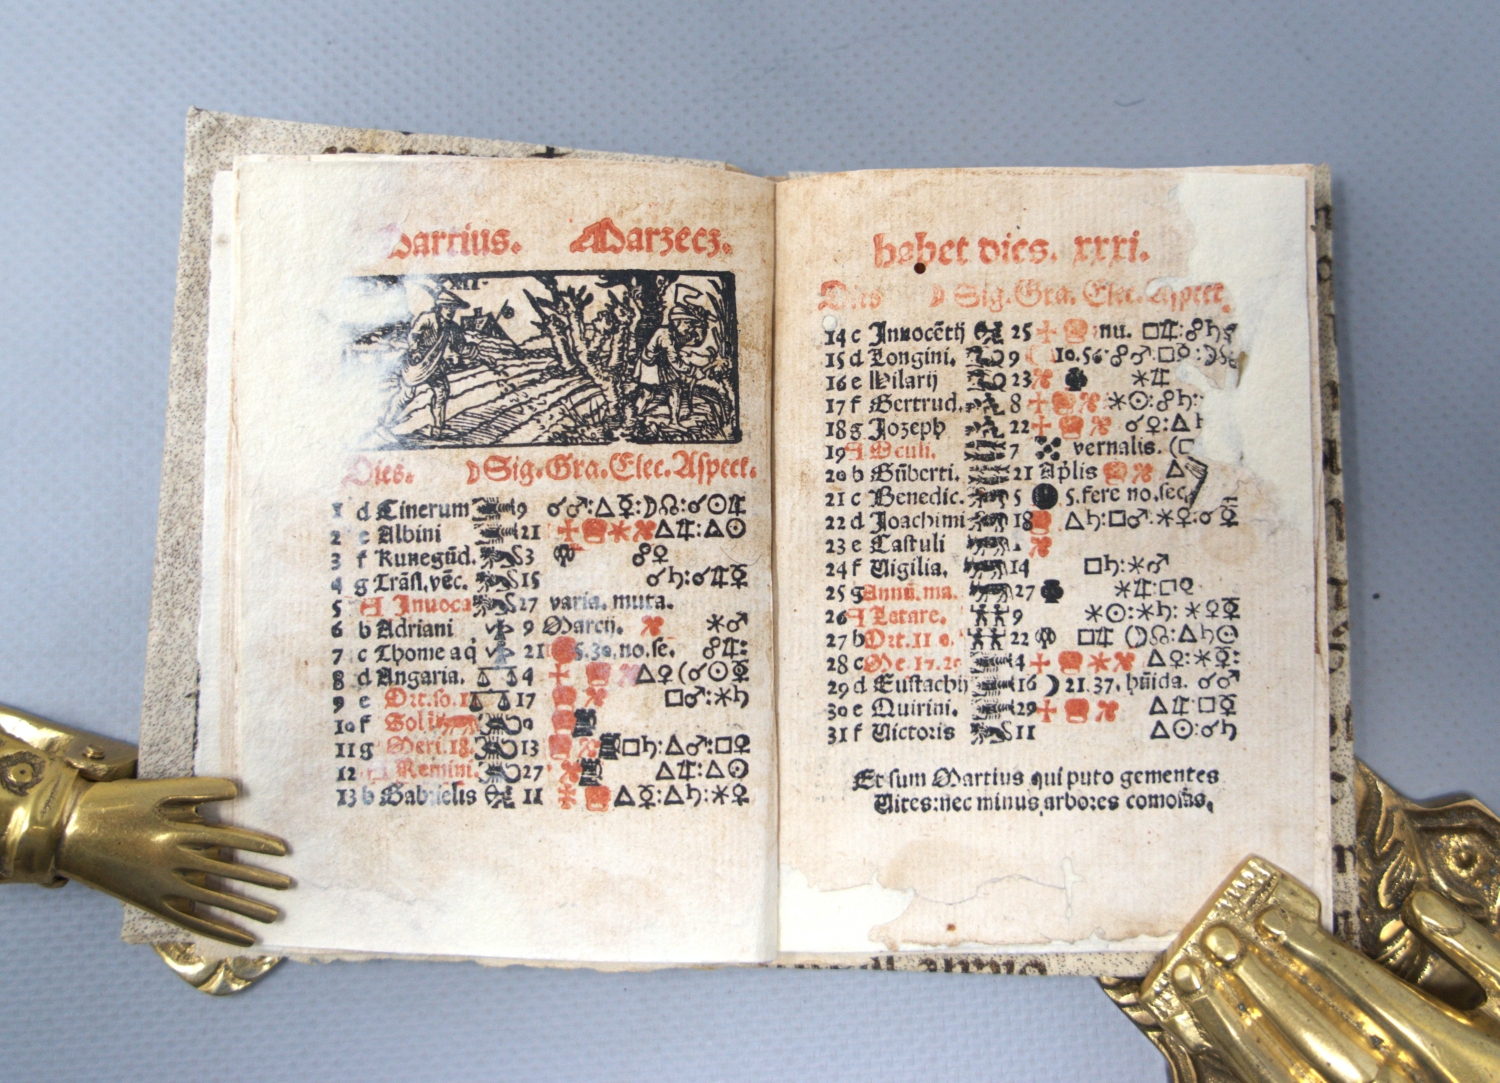 Martius. Marzecz.
Dies. ☽ Sig. Gra. Elec. Aspect.
1 d Cinerum 9 ☌♂:△☿:☽☊:☌☉♃
2 e Albini 21 △♃:△☉
3 f Kunegūd. 3 ☍♀
4 g Trāsl. vēc. 15 ☌♄:☌♃☿
5 Inuoca 27 varia. muta.
6 b Adriani 9 Marcij. ⚹♂
7 c Thome aq̄ 21 5.30. no. se. ☍♃:
8 d Angaria. 4 △♀(☌☉☿
9 e Ort. so. 17 □♂:⚹♄
10 f Solis
11 g Meri. 18. 13 □♄:△♂:□♀
12 Remini. 27 △♃:△☉
13 b Gabrielis 11 △☿:△♄:⚹♀
habet dies. xxxi.
Dies ☽ Sig. Gra. Elec. Aspect.
14 c Innocētij 25 nu. □♃:☍♄
15 d Longini. 9 10.56 ☍♂:□☿:
16 e Hilarij 23 ⚹♃
17 f Gertrud. 8 ⚹☉:☍♄:
18 g Jozeph 22 ☌♀:△♄
19 Oculi. 7 vernalis.
20 b Gūberti. 21 Ap̄lis △
21 c Benedic. 5 5. fere no. sec
22 d Joachimi 18 △♄:□♂:⚹♀:☌☿
23 e Castuli
24 f Uigilia. 14 □♄:⚹♂
25 g Annū. ma. 27 ⚹♃:□☿
26 Letare. 9 ⚹☉:⚹♄:⚹♀☿
27 b Ort. 11 22 □♃ ()☊:△♄☉
28 c 4 △♀:⚹☿:
29 d Eustachij 16 ☽ 21.37. hūida. ☌♂
30 e Quirini. 29 △♃:□☿
31 f Uictoris 11 △☉:☌♄
Et sum Martius qui puto gementes
Uites: nec minus arbores comosas.